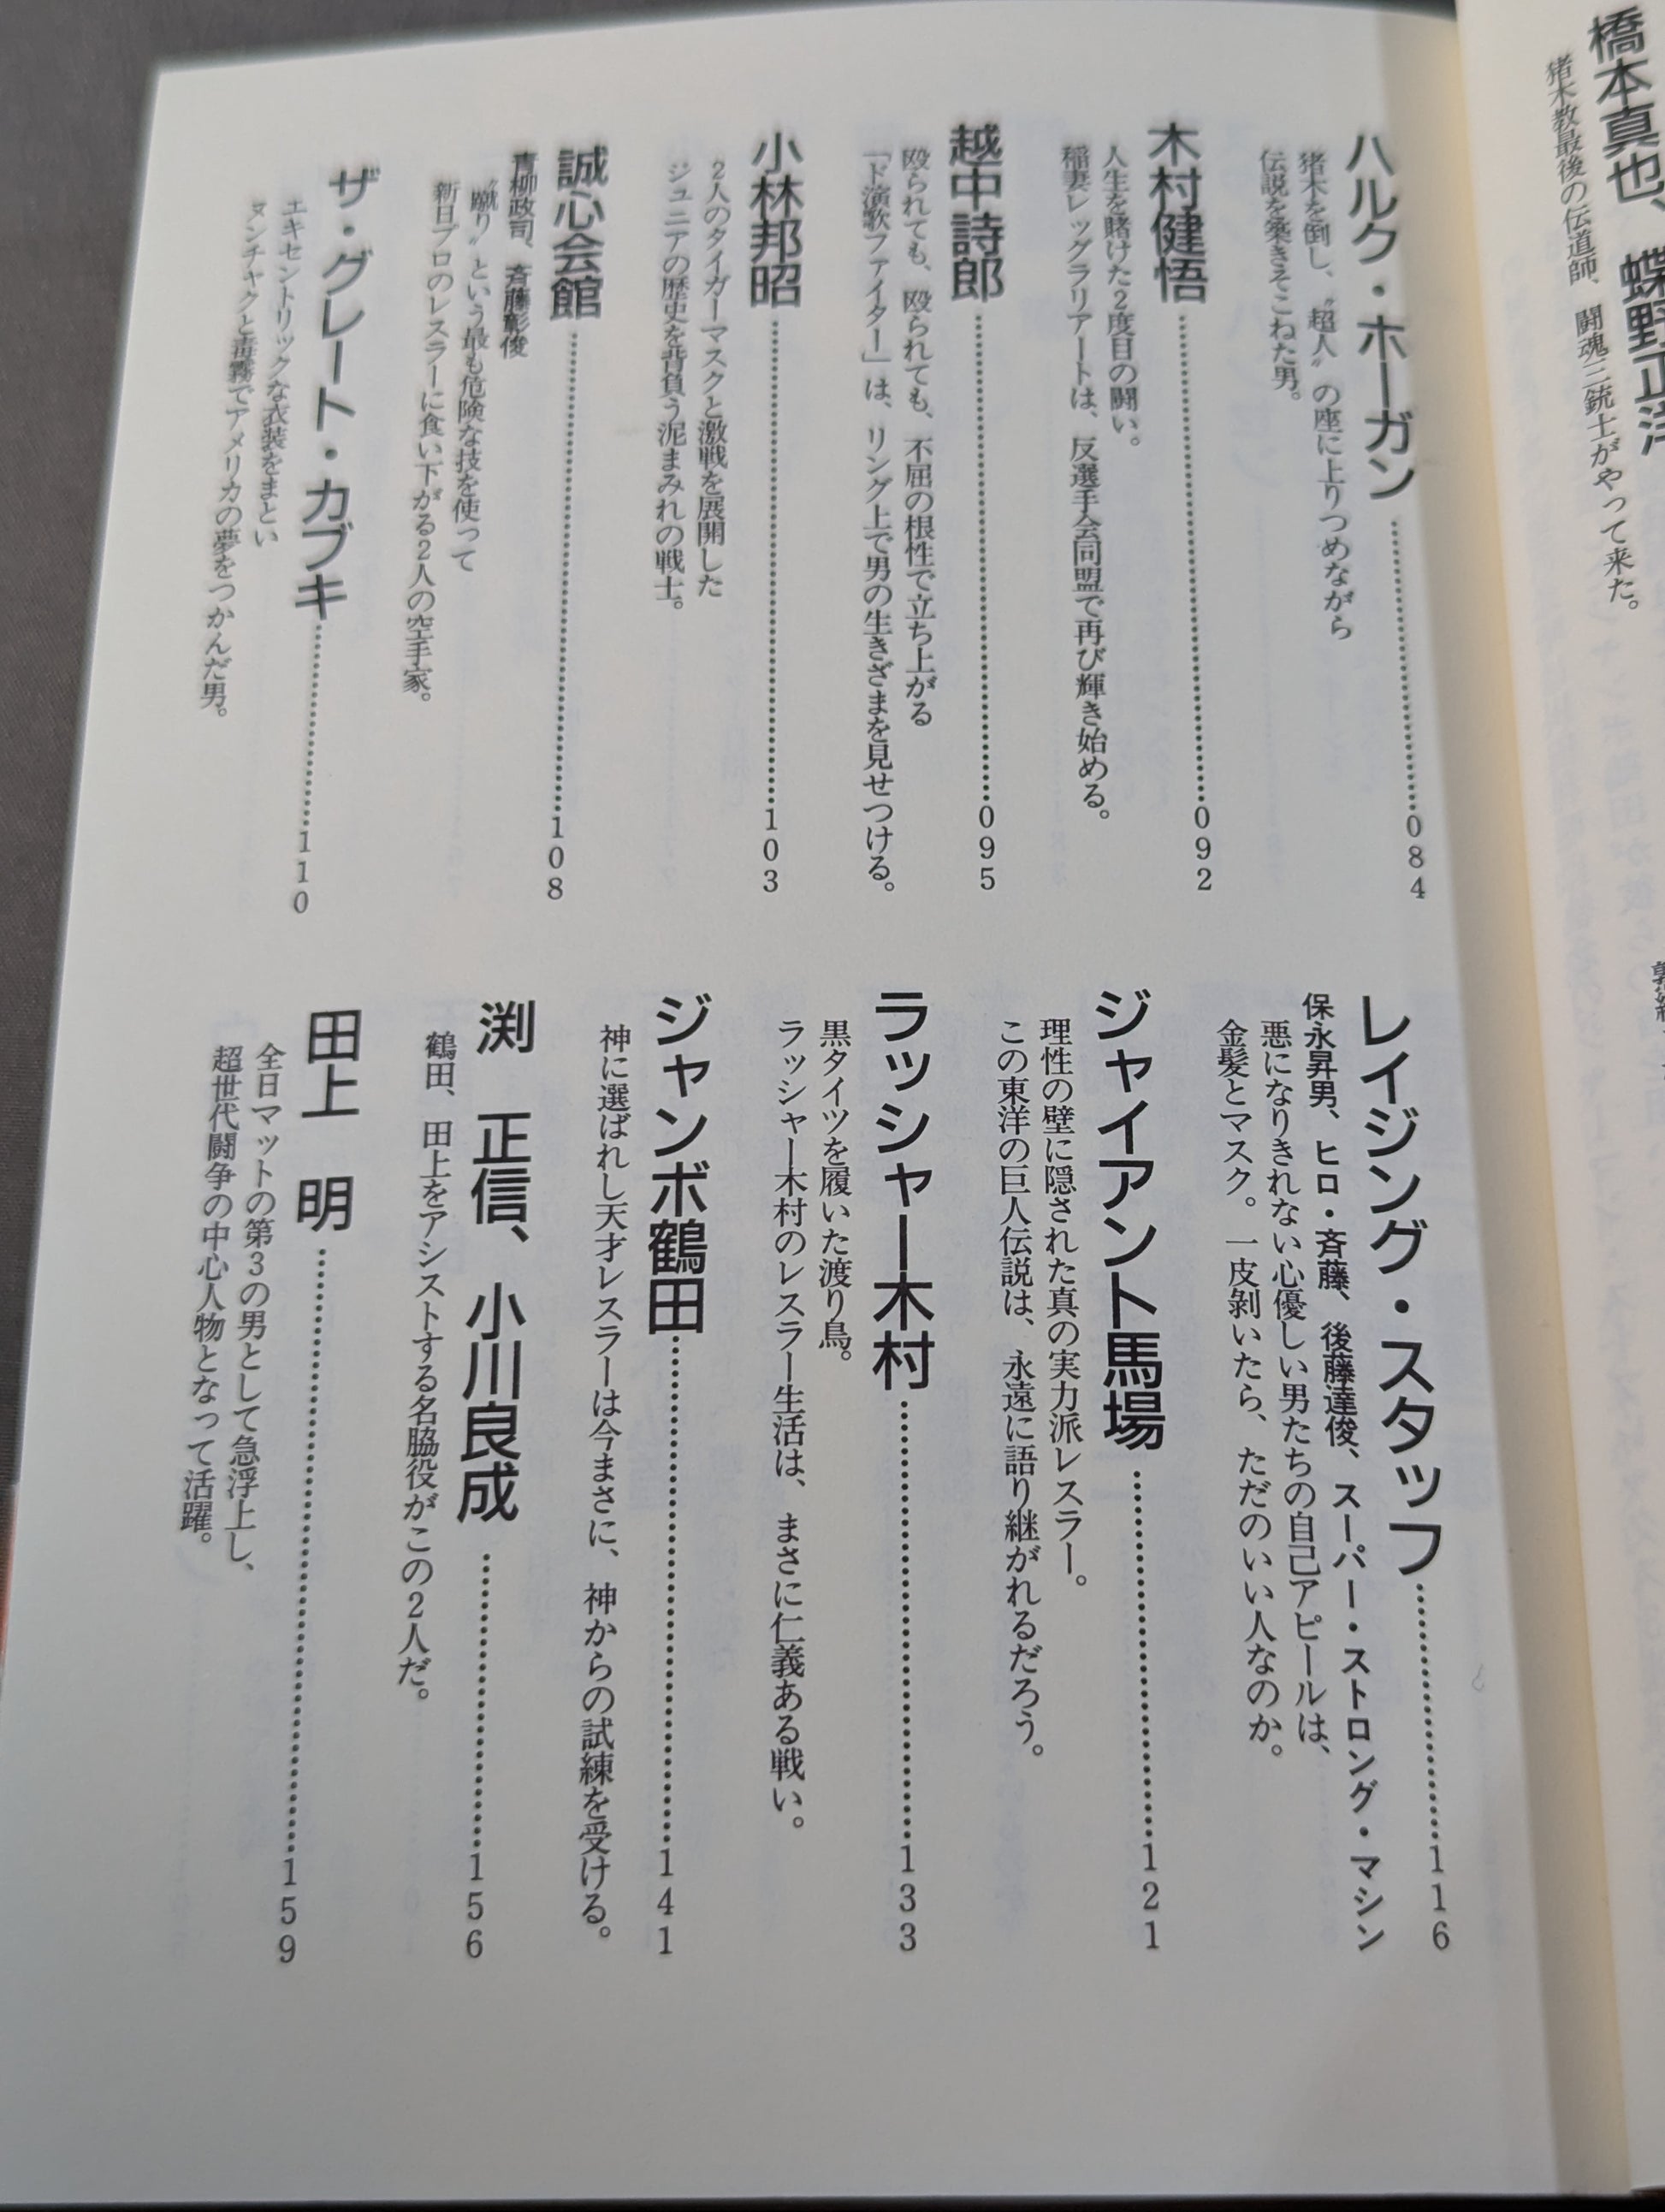 橋本真也、蝶野正洋
猪木教最後の伝道師、闘魂三銃士がやって来た。
ハルク・ホーガン……084
猪木を倒し、〝超人〟の座に上りつめながら
伝説を築きそこねた男。
木村健悟……092
人生を賭けた2度目の闘い。
稲妻レッグラリアートは、反選手会同盟で再び輝き始める。
越中詩郎……095
殴られても、殴られても、不屈の根性で立ち上がる
「ド演歌ファイター」は、リング上で男の生きざまを見せつける。
小林邦昭……103
2人のタイガーマスクと激戦を展開した
ジュニアの歴史を背負う泥まみれの戦士。
誠心会館……108
青柳政司、斉藤彰俊
〝蹴り〟という最も危険な技を使って
新日プロのレスラーに食い下がる2人の空手家。
ザ・グレート・カブキ……110
エキセントリックな衣装をまとい
ヌンチャクと毒霧でアメリカの夢をつかんだ男。
レイジング・スタッフ……116
保永昇男、ヒロ・斉藤、後藤達俊、スーパー・ストロング・マシン
悪になりきれない心優しい男たちの自己アピールは、
金髪とマスク。一皮剝いたら、ただのいい人なのか。
ジャイアント馬場……121
理性の壁に隠された真の実力派レスラー。
この東洋の巨人伝説は、永遠に語り継がれるだろう。
ラッシャー木村……133
黒タイツを履いた渡り鳥。
ラッシャー木村のレスラー生活は、まさに仁義ある戦い。
ジャンボ鶴田……141
神に選ばれし天才レスラーは今まさに、神からの試練を受ける。
渕 正信、小川良成……156
鶴田、田上をアシストする名脇役がこの2人だ。
田上 明……159
全日マットの第3の男として急浮上し、
超世代闘争の中心人物となって活躍。